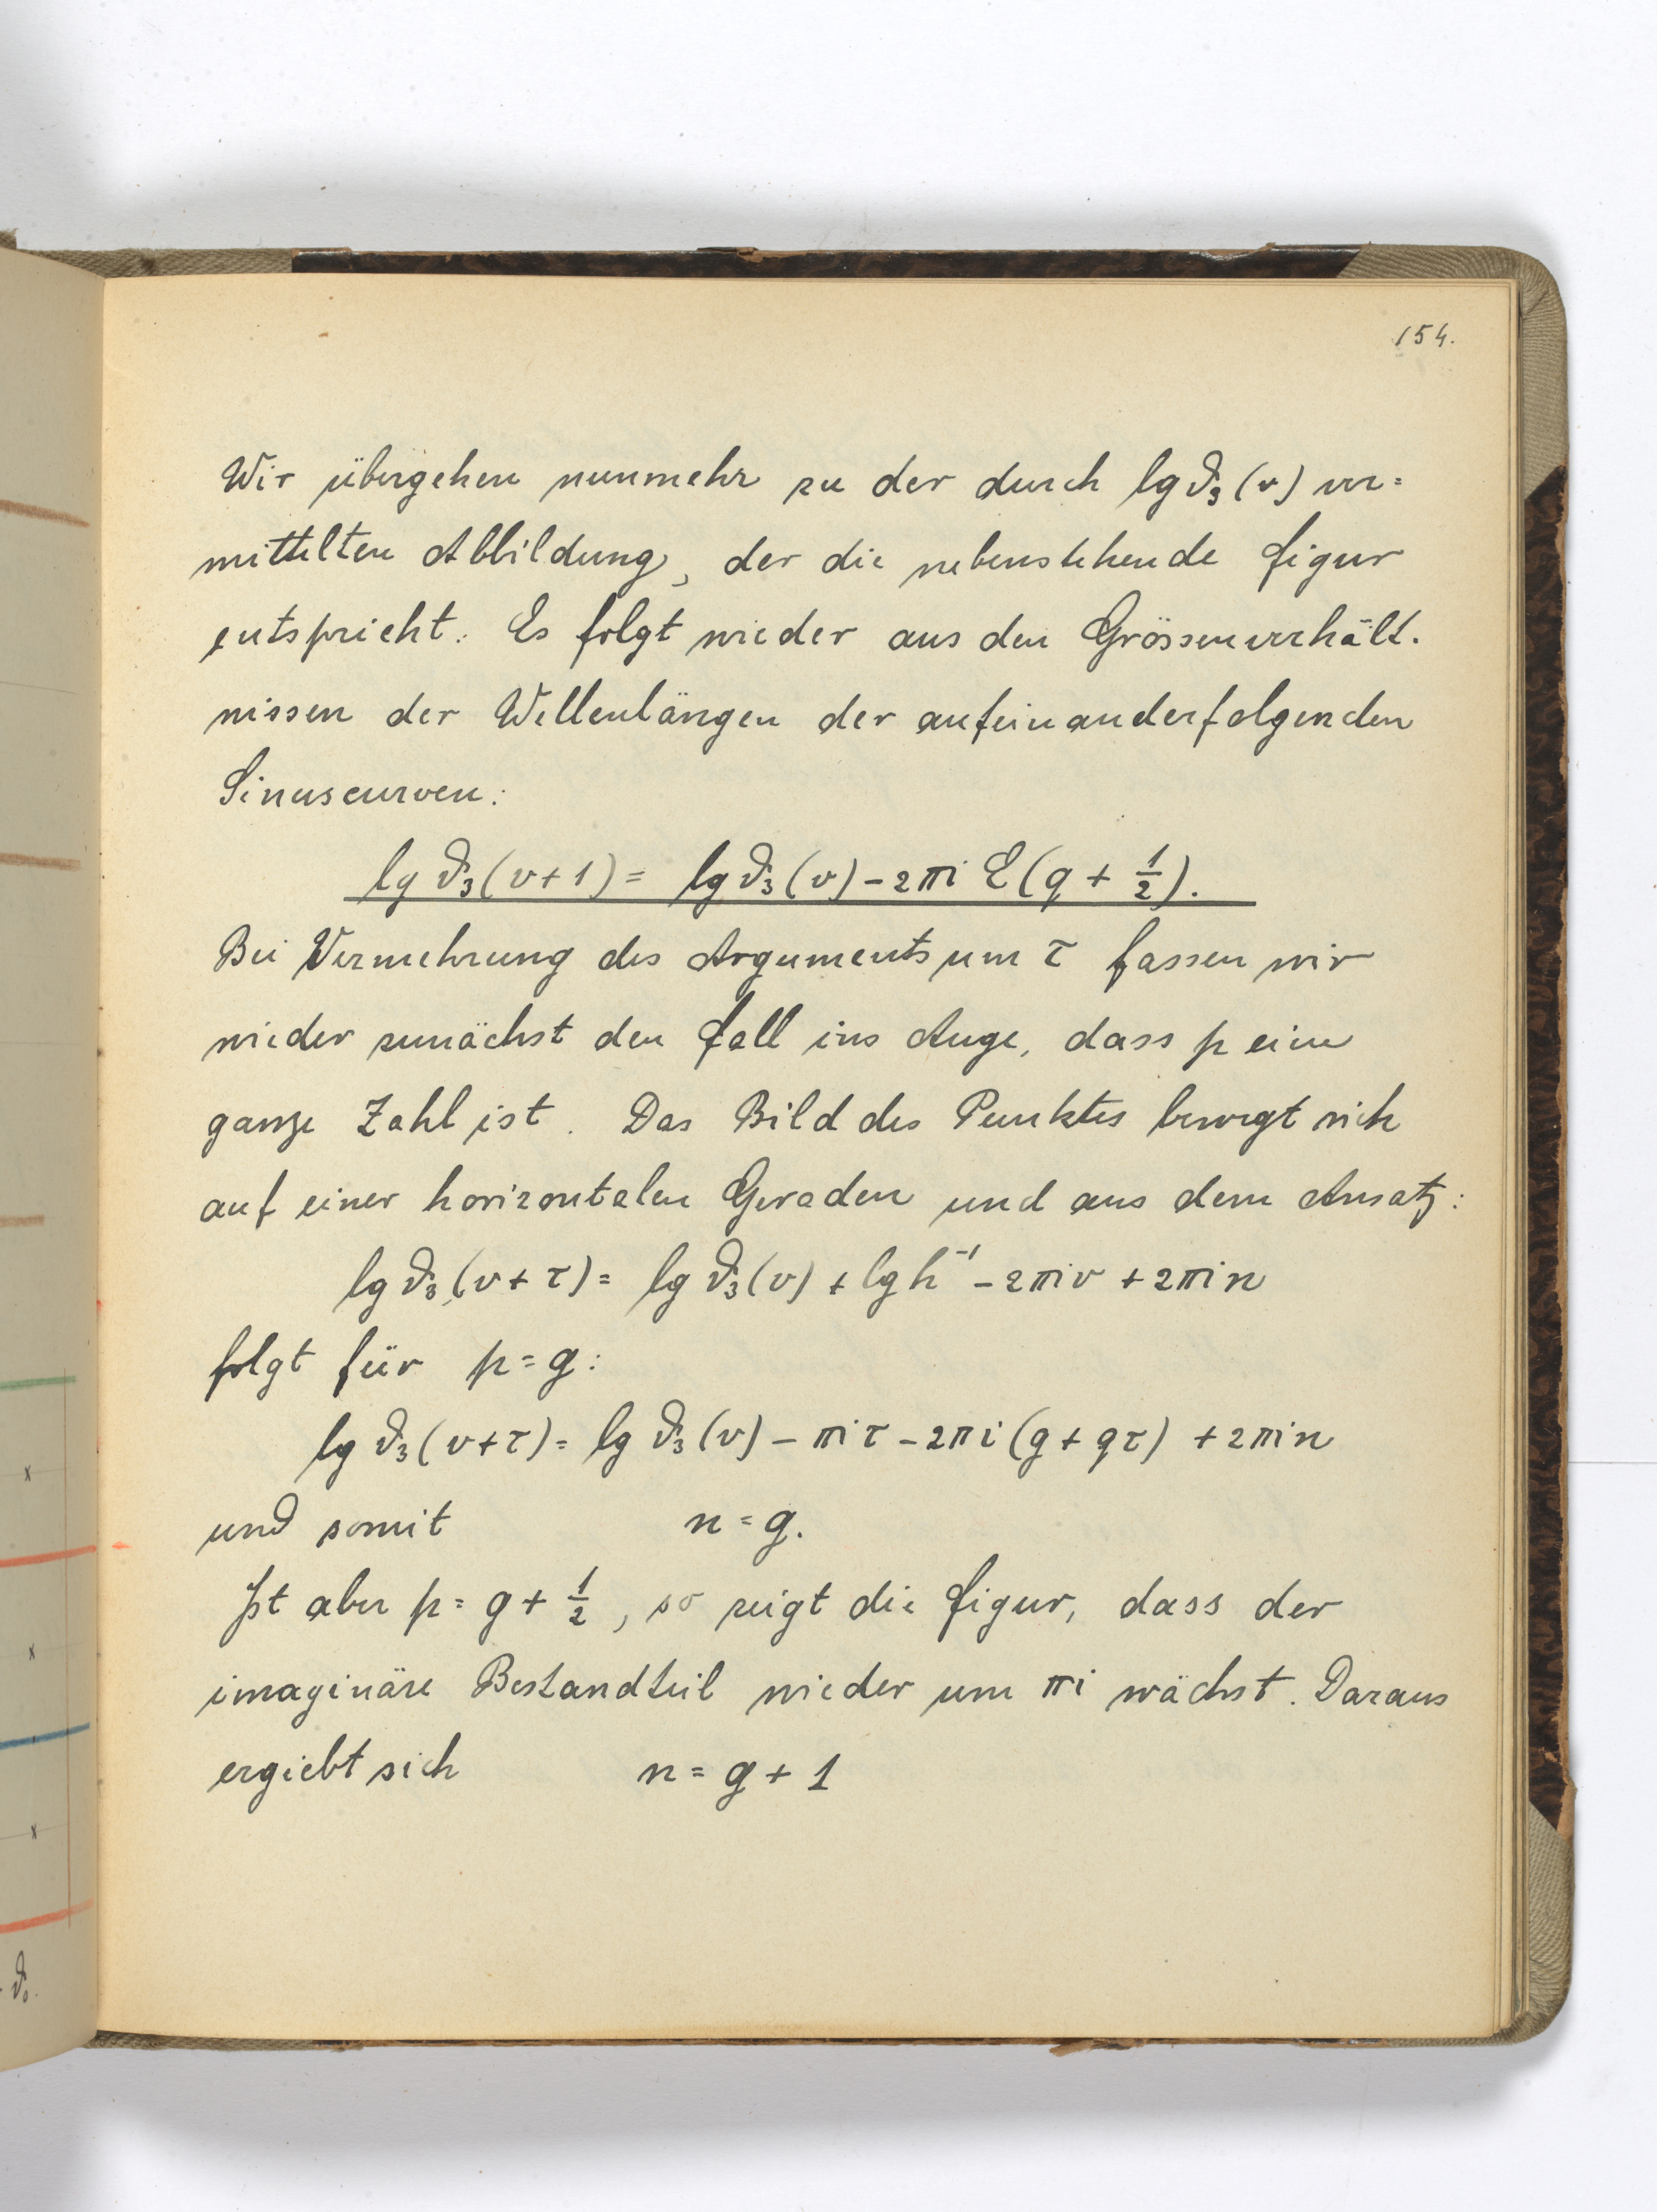 154.
Wir übergehen nunmehr zu der durch lg ϑ₃(v) ver=
mittelten Abbildung, der die nebenstehende Figur
entspricht. Es folgt wieder aus den Grössenverhält-
nissen der Wellenlängen der aufeinanderfolgenden
Sinuscurven:
lg ϑ₃(v+1) = lg ϑ₃(v) - 2πi E(q + 1/2).
Bei Vermehrung des Arguments um τ fassen wir
wieder zunächst den Fall ins Auge, dass p eine
ganze Zahl ist. Das Bild des Punktes bewegt sich
auf einer horizontalen Geraden und aus dem Ansatz:
lg ϑ₃(v+τ) = lg ϑ₃(v) + lg h⁻¹ - 2πiv + 2πin
folgt für p = g:
lg ϑ₃(v+τ) = lg ϑ₃(v) - πiτ - 2πi(g + qτ) + 2πin
und somit n = g.
Ist aber p = g + 1/2, so zeigt die Figur, dass der
imaginäre Bestandteil wieder um πi wächst. Daraus
ergiebt sich n = g + 1
ϑ₀.